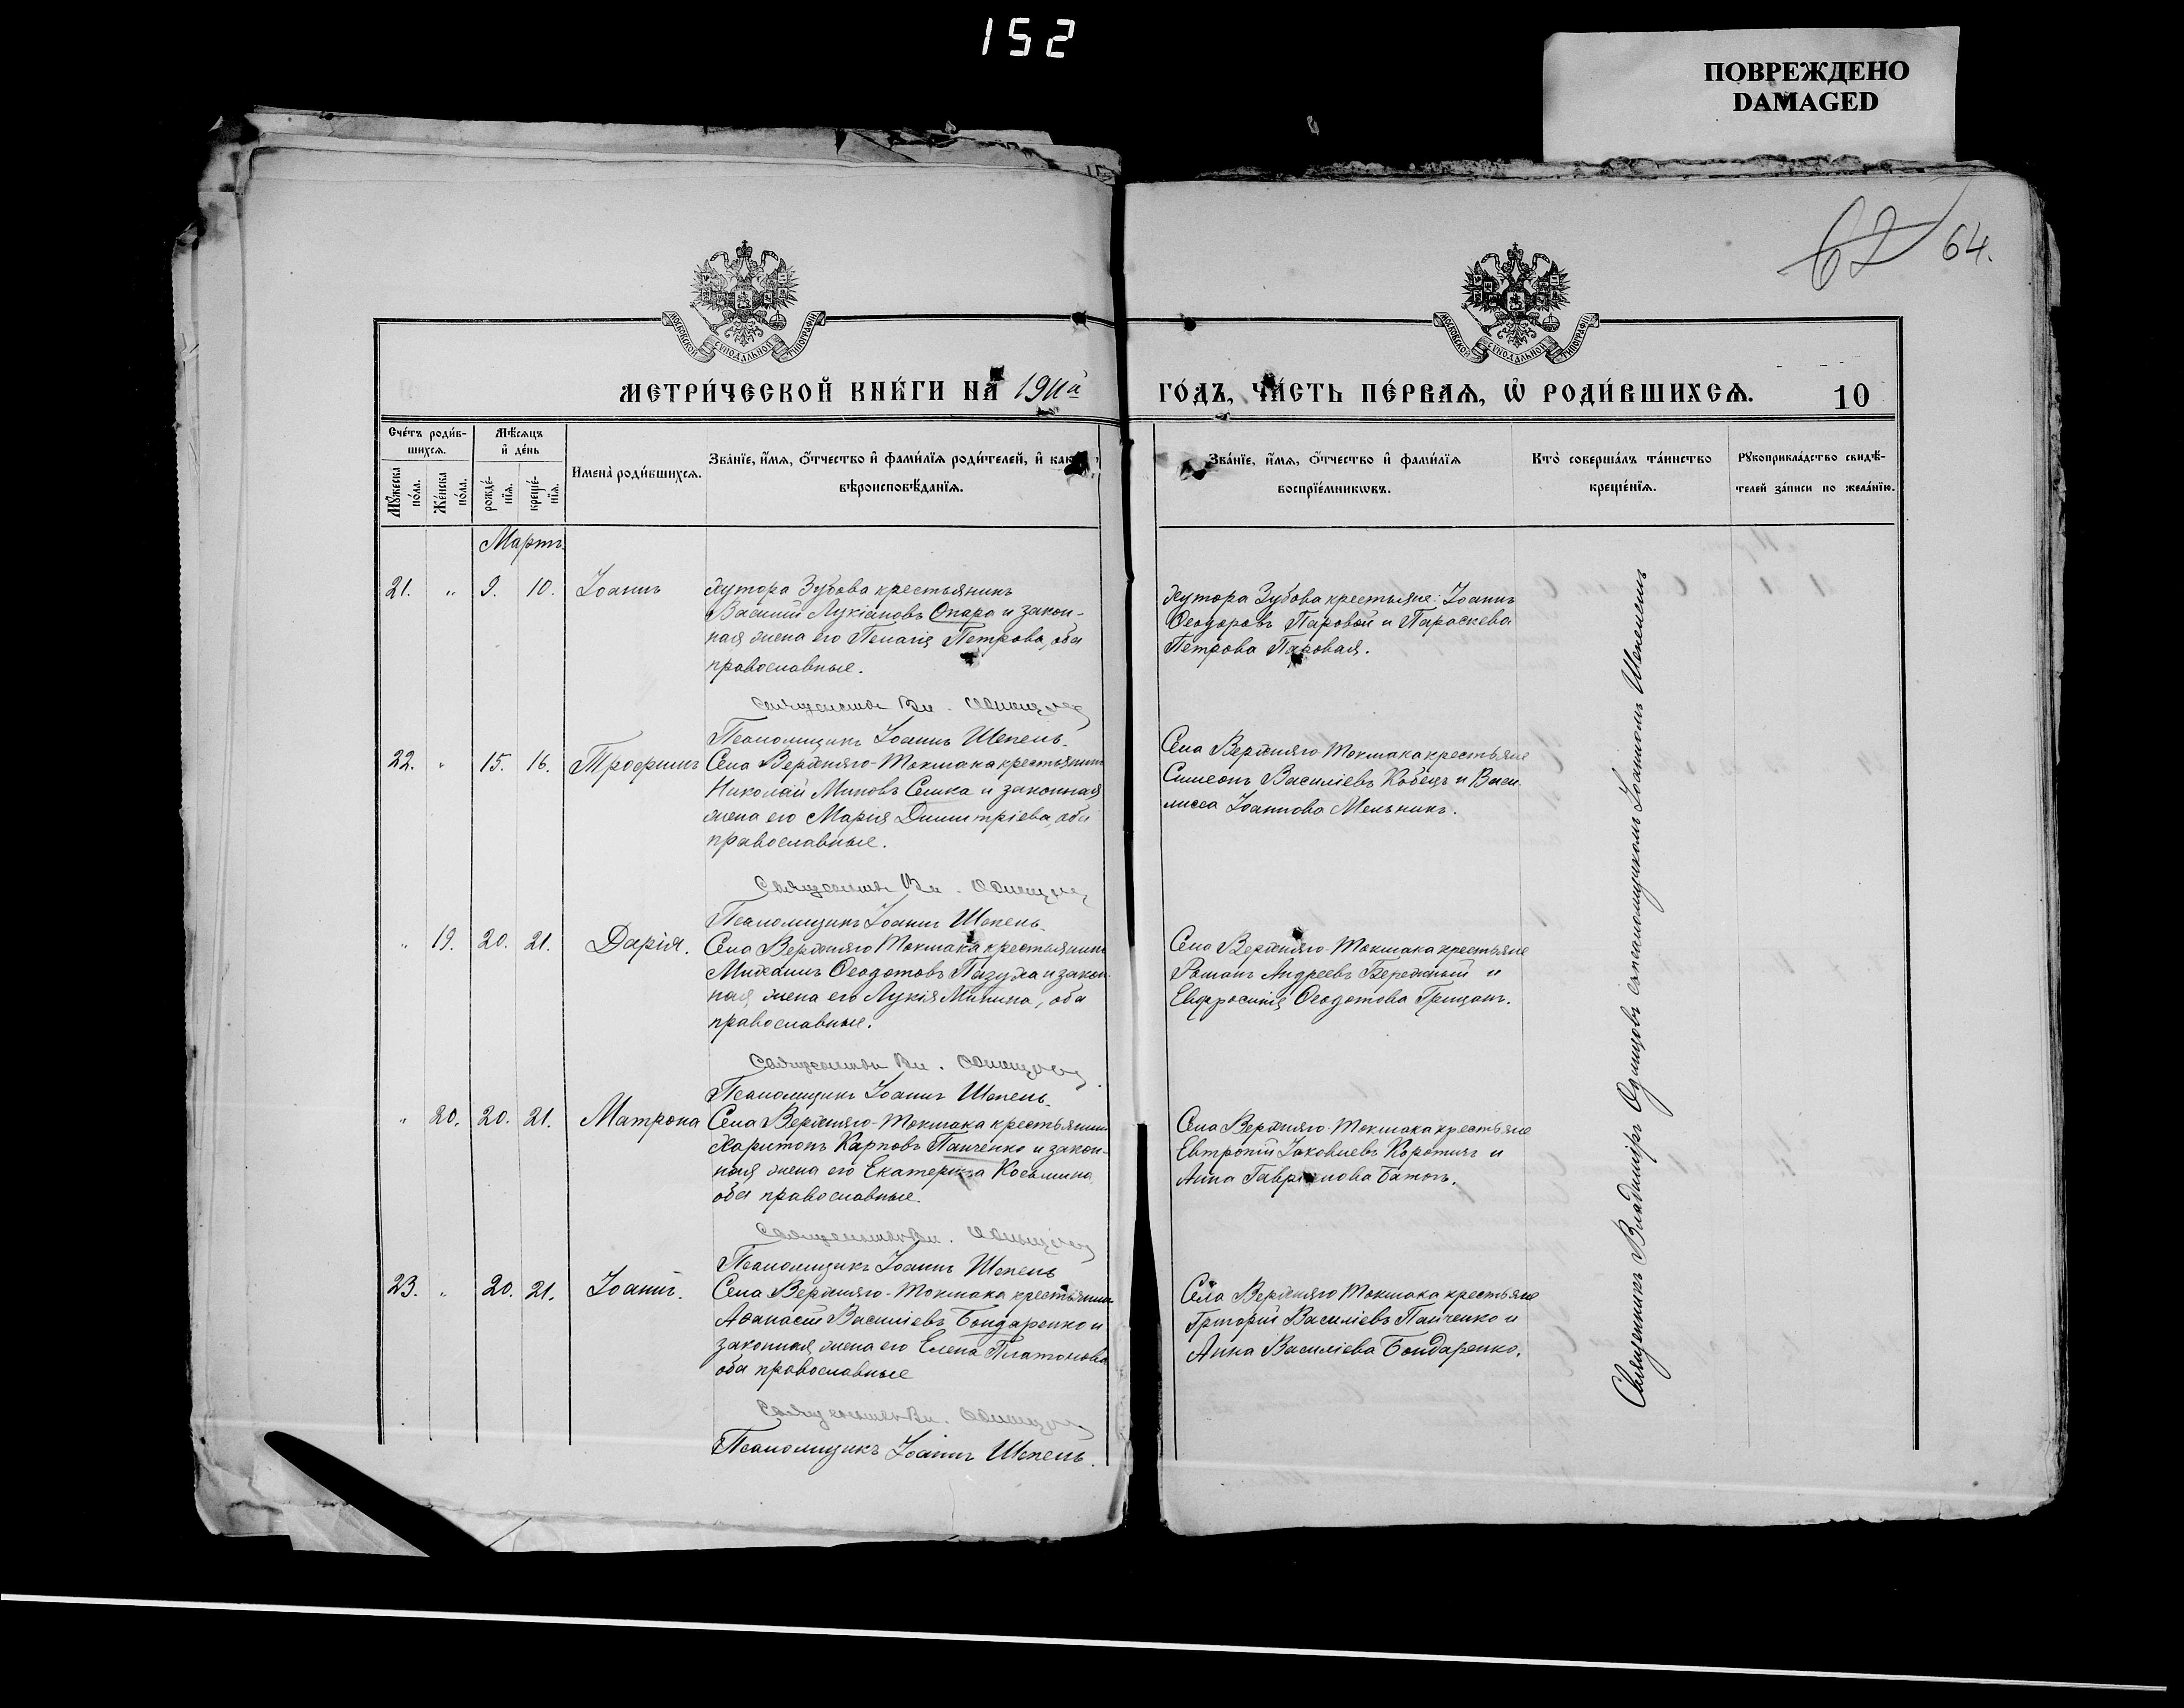 152
ПОВРЕЖДЕНО
DAMAGED
62 64.
МОСКОВСКОЙ СѴНОДАЛЬНОЙ ТИПОГРАФІИ
МОСКОВСКОЙ СѴНОДАЛЬНОЙ ТИПОГРАФІИ
МЕТРИ́ЧЕСКОЙ КНИ́ГИ НА 1911й
ГО́ДЪ, ЧА́СТЬ ПЕ́РВАѦ, Ѽ РОДИ́ВШИХСѦ. 10
Сче́тъ роди́в-
шихсѧ.
Мꙋ́жеска по́ла.
Же́нска по́ла.
Мѣ́сѧцъ
и҆ де́нь
рожде́-
нїѧ.
креще́-
нїѧ.
И҆мена̀ роди́вшихсѧ.
Зва́нїе, и҆́мѧ, ѻ҆́тчество и҆ фами́лїѧ роди́телей, и҆ како́
вѣроисповѣ́данїѧ.
Зва́нїе, и҆́мѧ, ѻ҆́тчество и҆ фами́лїѧ
воспрїе́мникѡвъ.
Кто̀ соверша́лъ та́инство
креще́нїѧ.
Рꙋкоприкла́дство свидѣ́-
телей за́писи по жела́нїю.
Мартъ.
21. " 9. 10. Іоаннъ
Хутора Зубова крестьянинъ
Василій Лукіановъ Опара и закон-
ная жена его Пелагія Петрова, оба
православные.
Священникъ Вл. Одинцовъ
Псаломщикъ Іоаннъ Шепель.
Хутора Зубова крестьяне: Іоаннъ
Ѳеодоровъ Паровой и Параскева
Петрова Паровая.
22. " 15. 16. Трофимъ
Села Верхняго-Токмака крестьянинъ
Николай Миновъ Сешка и законная
жена его Марія Димитріева, оба
православные.
Священникъ Вл. Одинцовъ
Псаломщикъ Іоаннъ Шепель.
Села Верхняго-Токмака крестьяне
Симеонъ Василіевъ Кобецъ и Васи-
лисса Іоаннова Мельникъ.
" 19. 20. 21. Дарія.
Села Верхняго Токмака крестьянинъ
Михаилъ Ѳеодотовъ Пазуха и закон-
ная жена его Лукія Минина, оба
православные.
Священникъ Вл. Одинцовъ
Псаломщикъ Іоаннъ Шепель.
Села Верхняго-Токмака крестьяне
Романъ Андреевъ Бережный и
Евфросинія Ѳеодотова Грицанъ.
" 20. 20. 21. Матрона
Села Верхняго-Токмака крестьянинъ
Харитонъ Карповъ Панченко и закон-
ная жена его Екатерина Косьмина
оба православные.
Священникъ Вл. Одинцовъ
Псаломщикъ Іоаннъ Шепель
Села Верхняго-Токмака крестьяне
Евтропій Іаковлевъ Коротичъ и
Анна Гавріилова Батогъ.
23. " 20. 21. Іоаннъ.
Села Верхняго-Токмака крестьянинъ
Аѳанасій Василіевъ Бондаренко и
законная жена его Елена Платонова
оба православные
Священникъ Вл. Одинцовъ
Псаломщикъ Іоаннъ Шепель.
Села Верхняго Токмака крестьяне
Григорій Василіевъ Панченко и
Анна Василіева Бондаренко.
Священникъ Владиміръ Одинцовъ съ псаломщикомъ Іоанномъ Шепелемъ